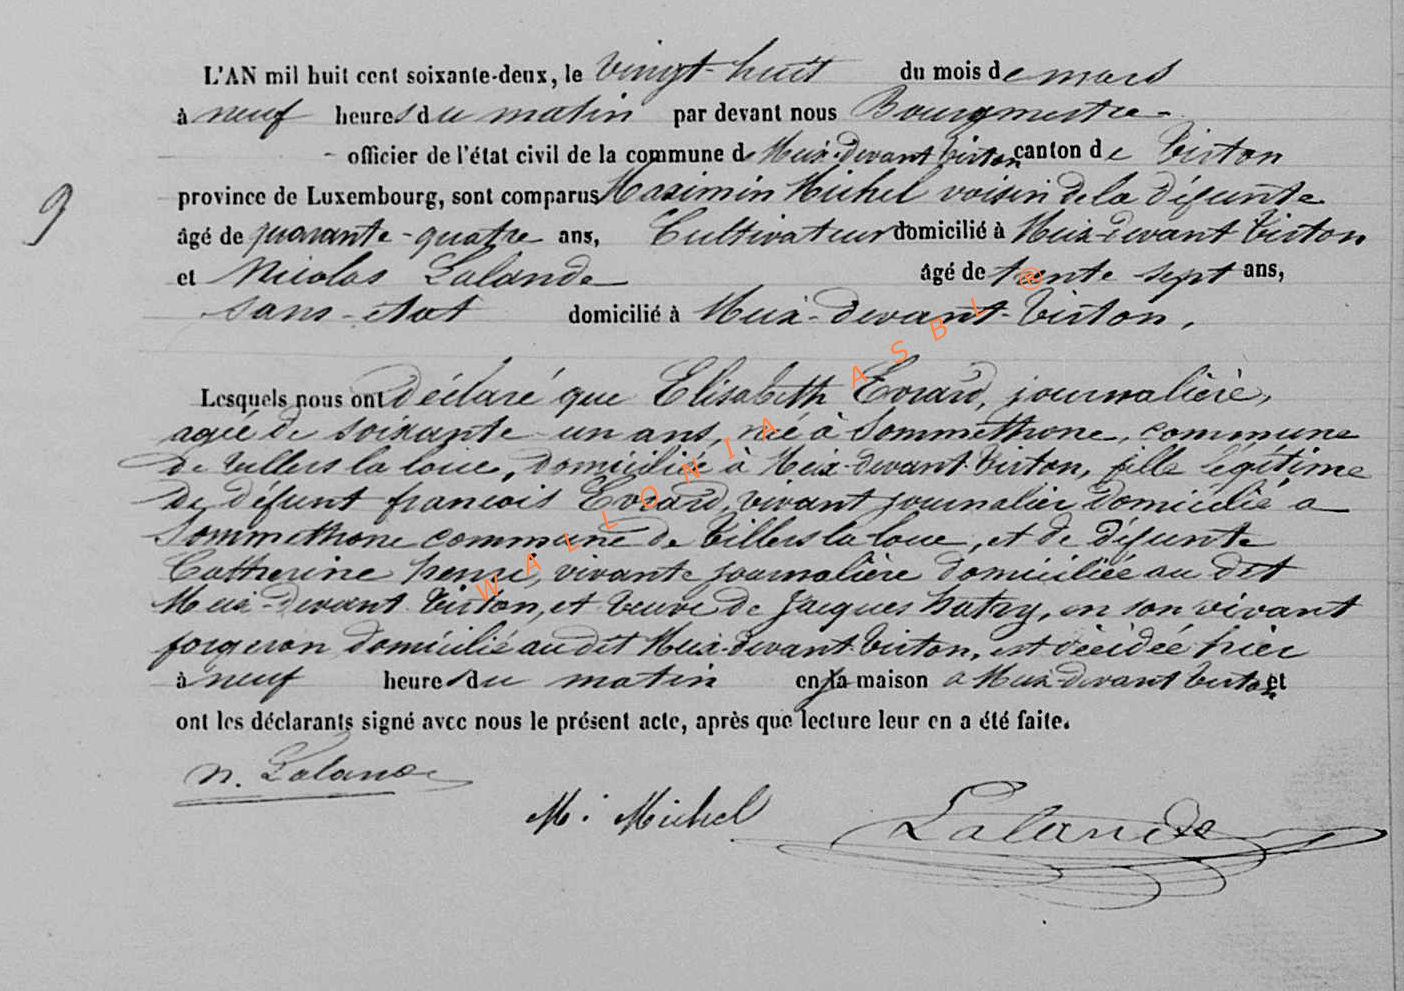 L'AN mil huit cent soixante-deux, le vingt-huit du mois de mars
à neuf heures du matin par devant nous Bourgmestre-
- officier de l'état civil de la commune de Meix-devant Virton canton de Virton
9
province de Luxembourg, sont comparus Maximin Michel voisin de la défunte
âgé de quarante-quatre ans, Cultivateur domicilié à Meix-devant Virton
et Nicolas Lalande âgé de trente sept ans,
sans-état domicilié à Meix-devant-Virton,
Lesquels nous ont déclaré que Elisabeth Evrard, journalière,
agée de soixante-un ans, née à Sommethone, commune
de Villers la loue, domiciliée à Meix-devant-Virton, fille légitime
de défunt françois Evrard, vivant journalier domicilié a
Sommethone commune de Villers la loue, et de défunte
Catherine, vivante journalière domiciliée au dit
Meix-devant Virton, et veuve de Jacques hutry, en son vivant
forgeron domicilié audit Meix-devant-Virton, est décédée hier
à neuf heures du matin en sa maison a Meix-devant Virton et
ont les déclarants signé avec nous le présent acte, après que lecture leur en a été faite.
n. Lalande
M. Michel
Lalande
WALLONIA ASBL ®